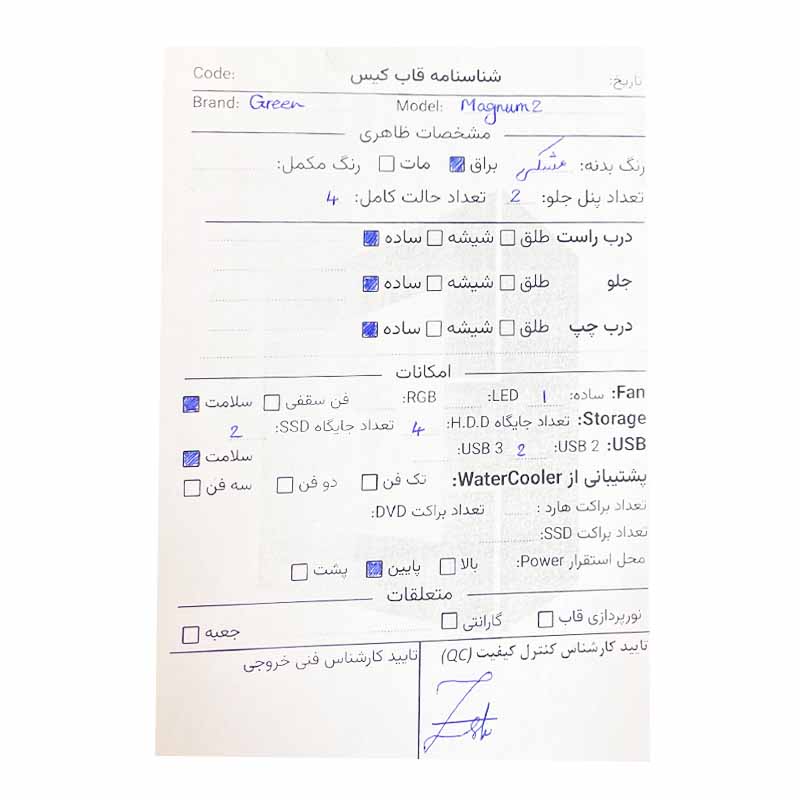 تاریخ: شناسنامه قاب کیس Code:
Brand: Green Model: Magnum2
مشخصات ظاهری
رنگ بدنه: مشکی براق مات رنگ مکمل:
تعداد پنل جلو: 2 تعداد حالت کامل: 4
درب راست طلق شیشه ساده
جلو طلق شیشه ساده
درب چپ طلق شیشه ساده
امکانات
Fan: ساده: 1 LED: RGB: فن سقفی سلامت
Storage: تعداد جایگاه H.D.D: 4 تعداد جایگاه SSD: 2
USB: USB 2: 2 USB 3: سلامت
پشتیبانی از WaterCooler: تک فن دو فن سه فن
تعداد براکت هارد : تعداد براکت DVD:
تعداد براکت SSD:
محل استقرار Power: بالا پایین پشت
متعلقات
نورپردازی قاب گارانتی جعبه
تایید کارشناس کنترل کیفیت (QC) تایید کارشناس فنی خروجی